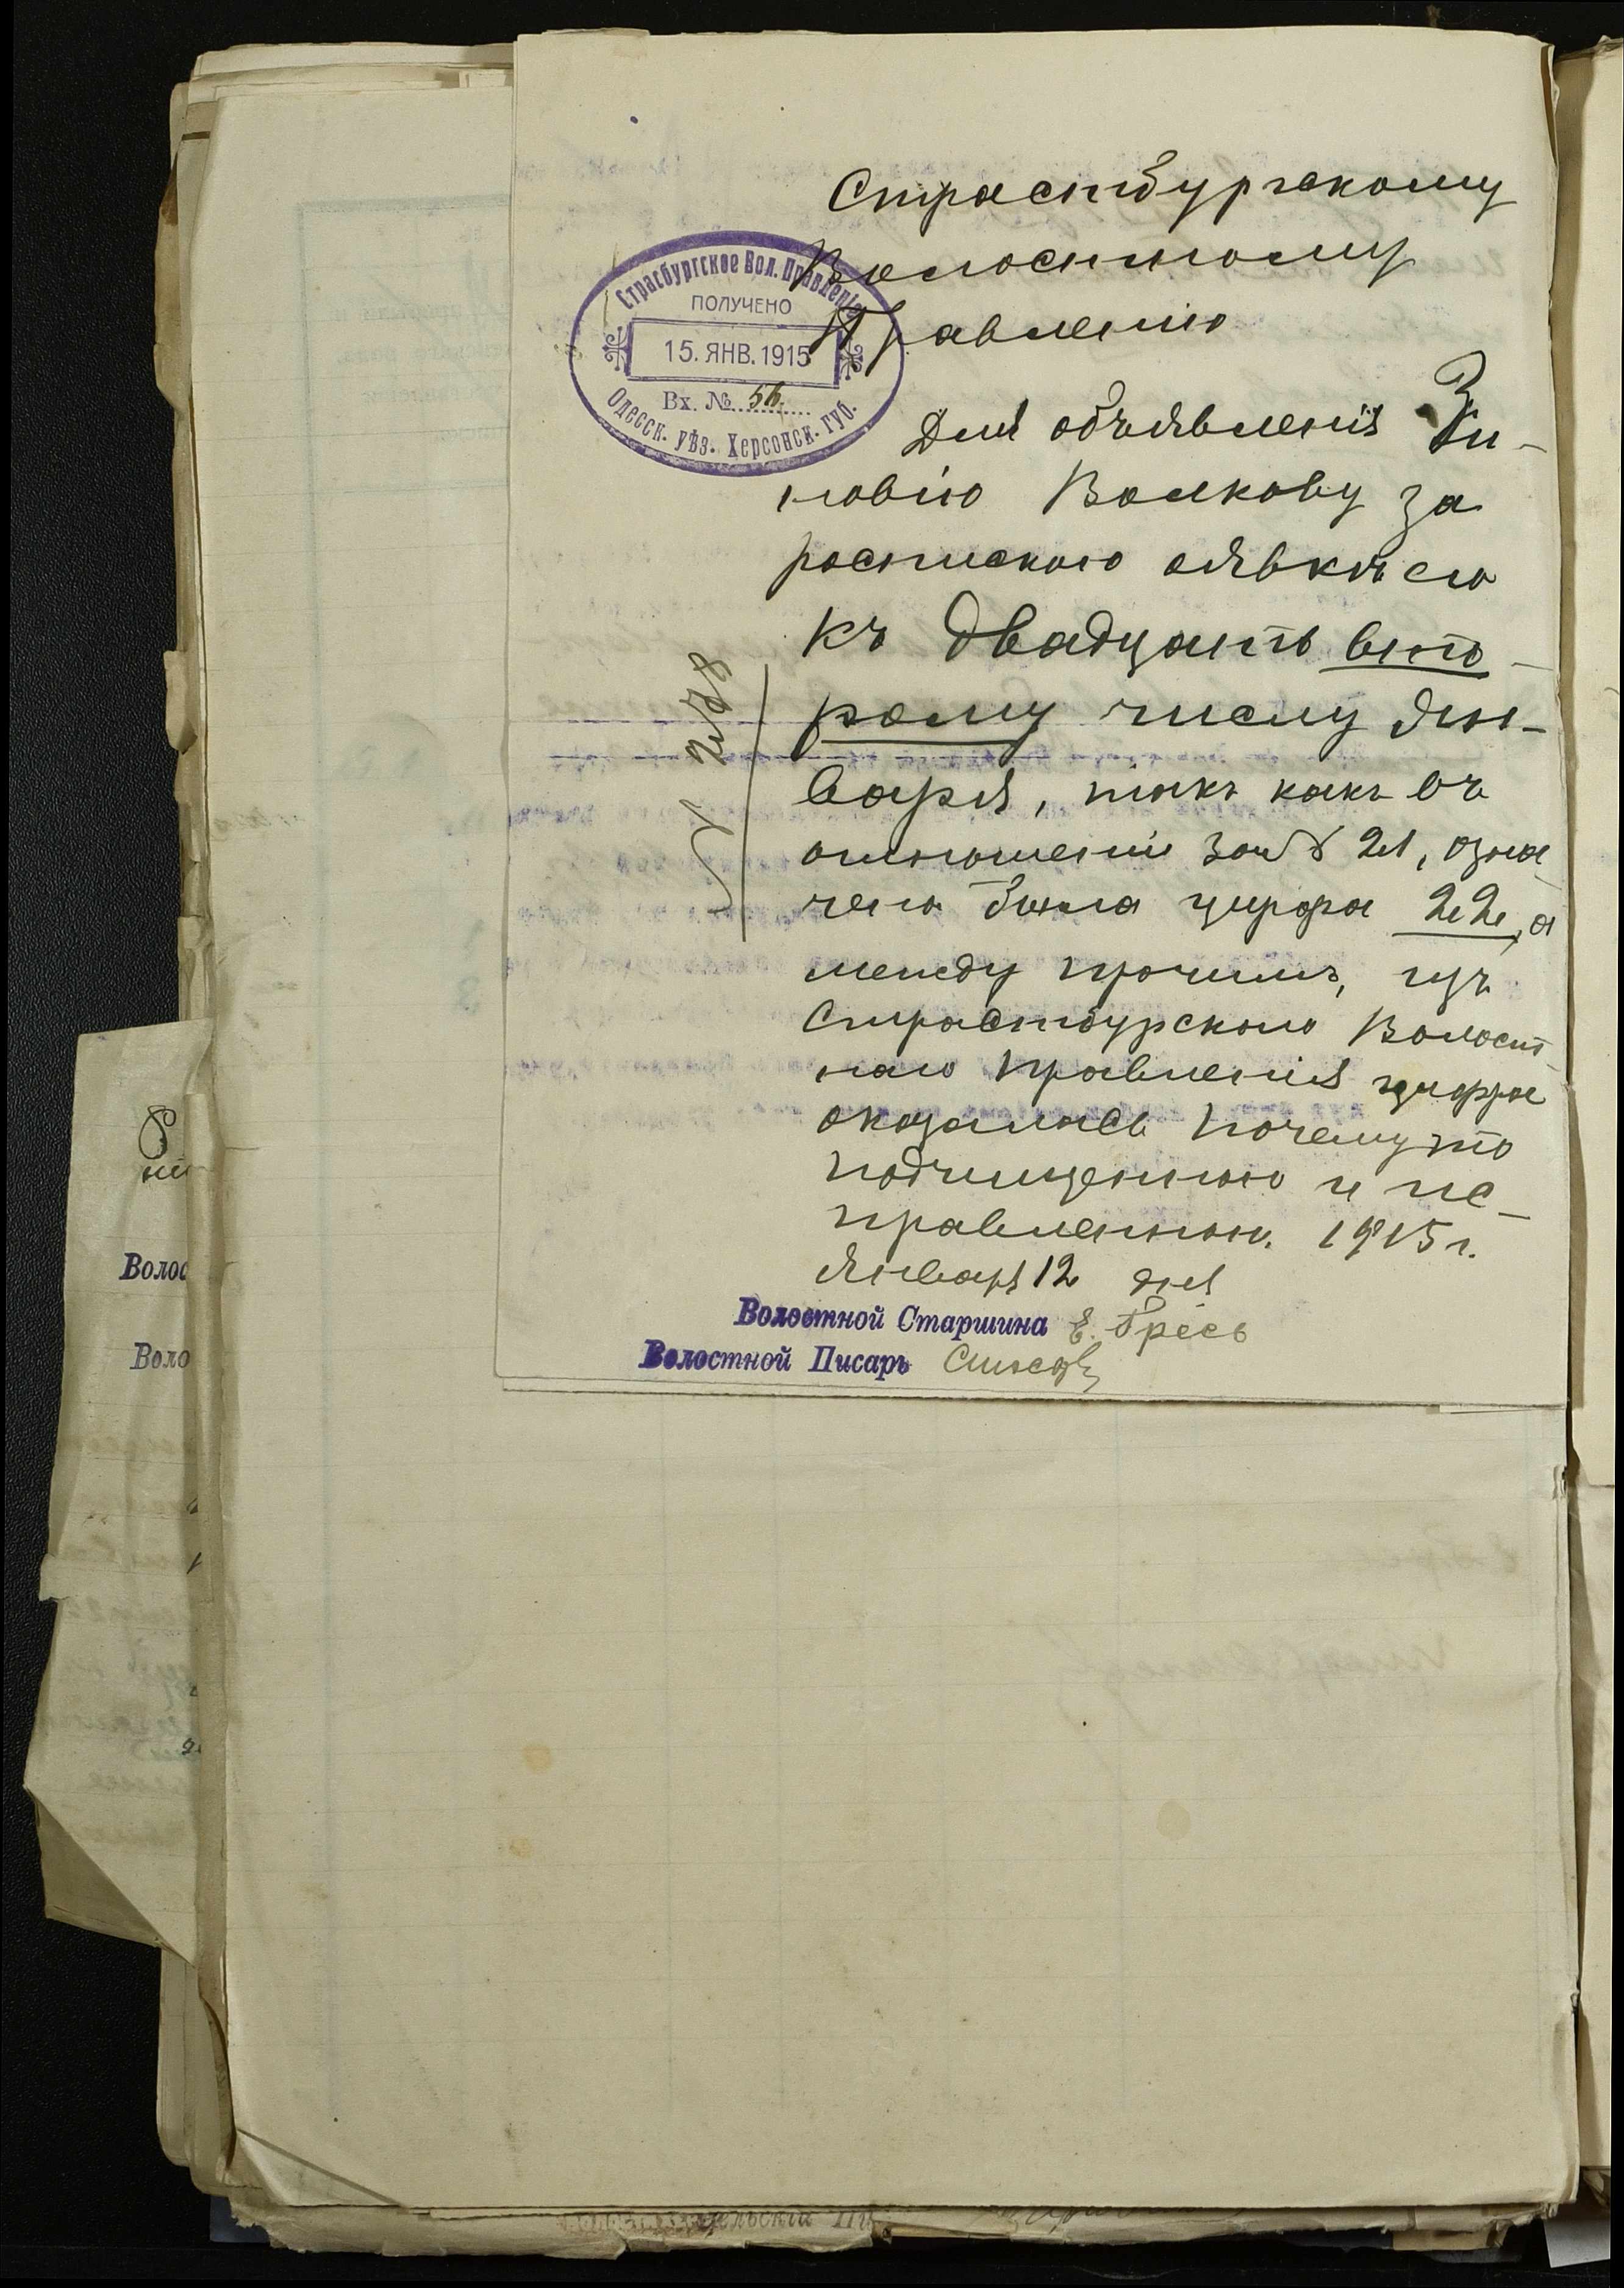 Страстбургскому
Волостному
Правленію
Страсбургское Вол. Правленіе
ПОЛУЧЕНО
15. ЯНВ. 1915
Вх. № 56.
Одесск. уѣз. Херсонск. губ.
Для объявленія Зи-
новію Волкову за
роспискою о явкѣ его
къ двадцать вто-
рому числу Ян-
варя, такъ какъ въ
отношеніи за № 21, озна
чена была цифра 22, а
между прочимъ, изъ
Страстбурского Волост
наго Правленія цифра
оказалась почему то
подчищенною и ис-
правленною. 1915 г.
Января 12 дня
Волостной Старшина Е.
Волостной Писарь
Волос
Воло